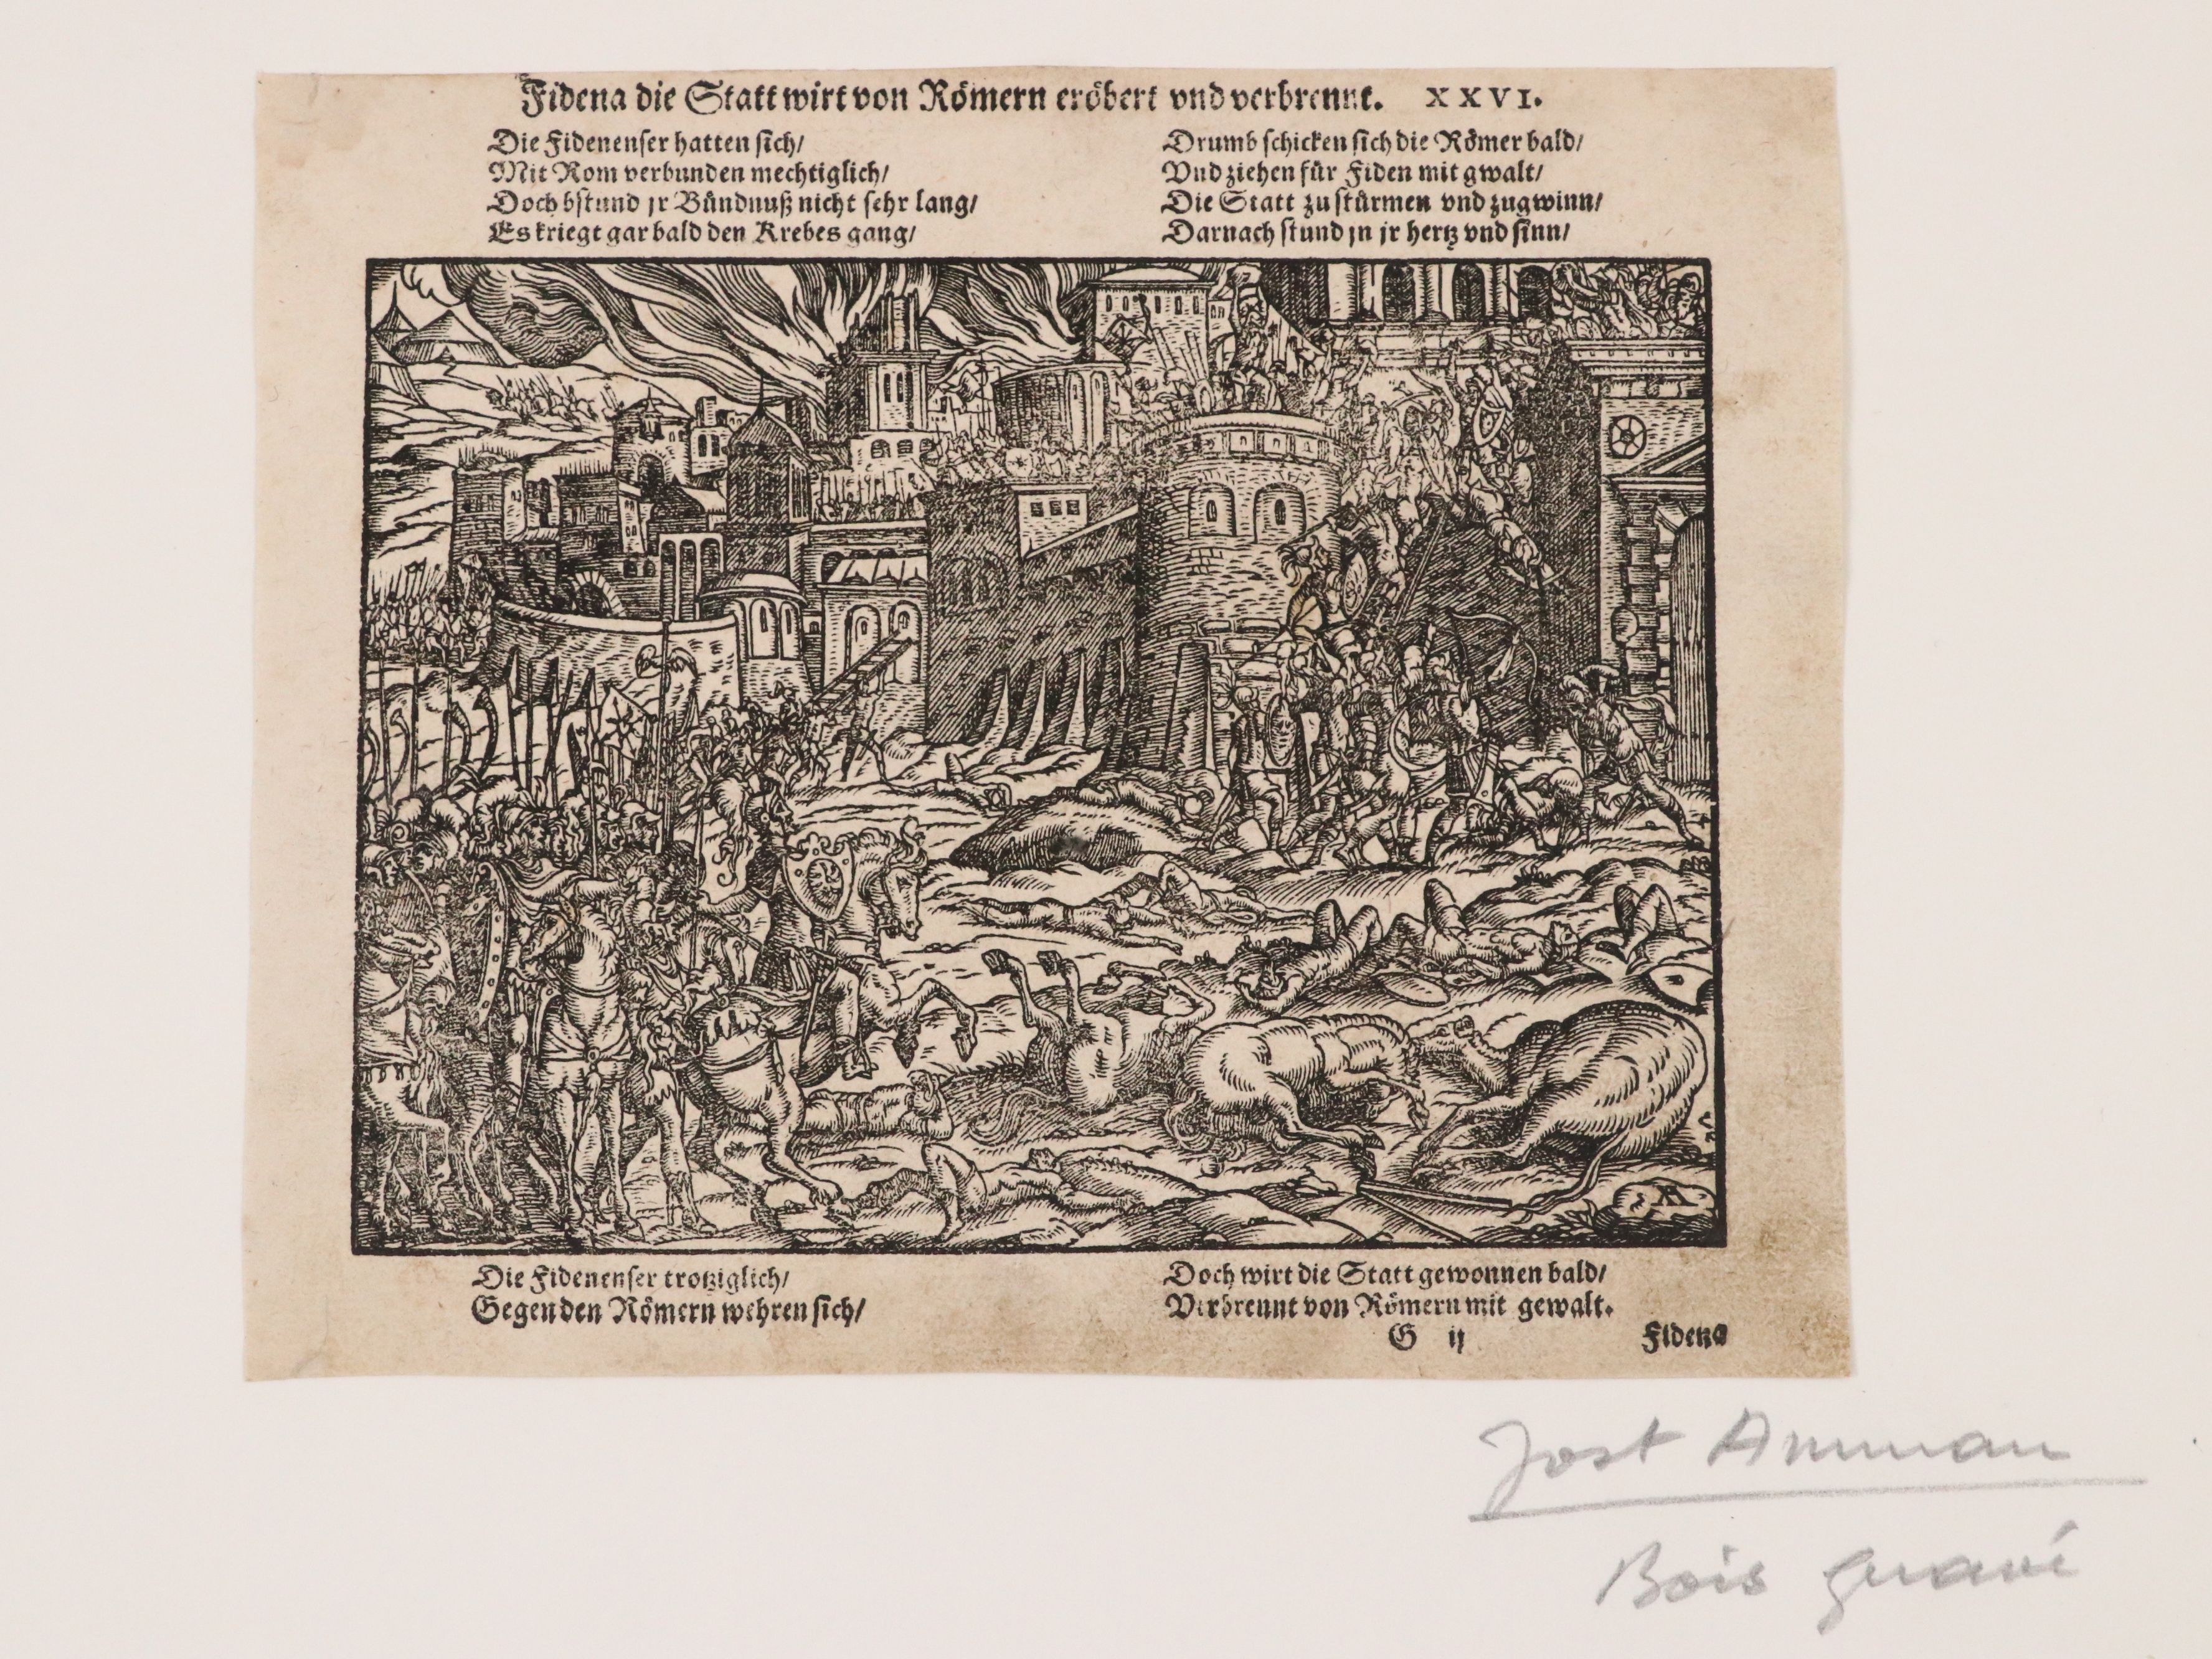 Fidena die Statt wirt von Römern eröbert vnd verbrennt. XXVI.
Die Fidenenser hatten sich/
Mit Rom verbunden mechtiglich/
Doch bstund jr Bündnuß nicht sehr lang/
Es kriegt gar bald den Krebes gang/
Drumb schicken sich die Römer bald/
Vnd ziehen für Fiden mit gwalt/
Die Statt zu stürmen vnd zugwinn/
Darnach stund jn jr hertz vnd sinn/
Die Fidenenser trotziglich/
Gegen den Römern wehren sich/
Doch wirt die Statt gewonnen bald/
Verbrennt von Römern mit gewalt.
G ij
Fidena
Jost Amman
Bois gravé